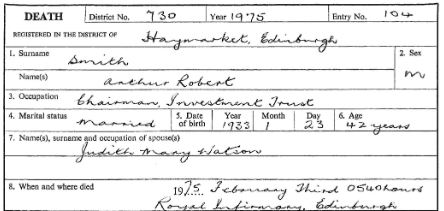 DEATH District No. 730 Year 1975 Entry No. 104
REGISTERED IN THE DISTRICT OF Haymarket, Edinburgh
1. Surname Smith 2. Sex
Name(s) Arthur Robert M
3. Occupation Chairman, Investment Trust
4. Marital status Married 5. Date of birth Year 1933 Month 1 Day 23 6. Age 42 years
7. Name(s), surname and occupation of spouse(s)
Judith Mary Watson
8. When and where died 1975 February Third 0540 hours
Royal Infirmary, Edinburgh